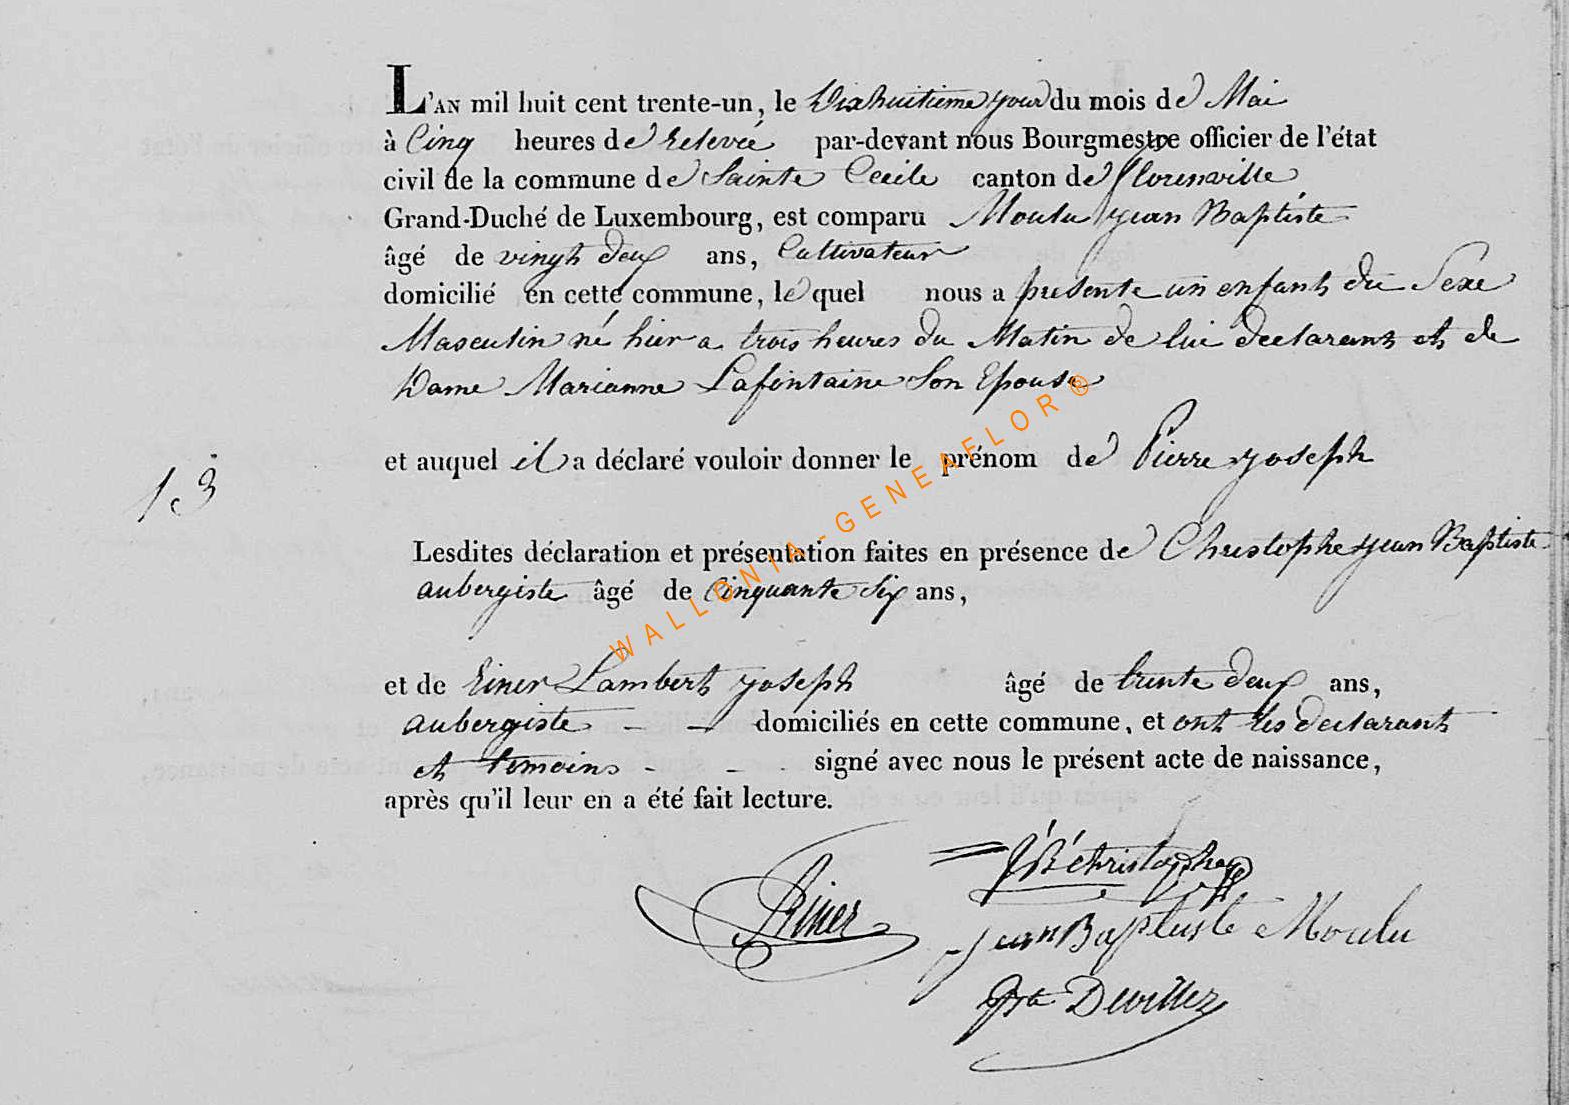 L'AN mil huit cent trente-un, le Dixhuitieme jour du mois de Mai
à Cinq heures de relevée par-devant nous Bourgmestre officier de l'état
civil de la commune de Sainte Cecile canton de florenville
Grand-Duché de Luxembourg, est comparu Moulu jean Baptiste
âgé de vingt deux ans, Cultivateur
domicilié en cette commune, le quel nous a presente un enfant du Sexe
Masculin né hier a trois heures du Matin de lui declarant et de
Dame Marianne Lafontaine Son Epouse
et auquel il a déclaré vouloir donner le prénom de Pierre joseph
13
Lesdites déclaration et présentation faites en présence de Christophe jean Baptiste
aubergiste âgé de Cinquante Six ans,
et de Riner Lambert joseph âgé de trente deux ans,
aubergiste - - domiciliés en cette commune, et ont les declarant
et temoins - - signé avec nous le présent acte de naissance,
après qu'il leur en a été fait lecture.
JB Christophe
Riner
jean Baptiste Moulu
Devillez
WALLONIA-GENEAFLOR®